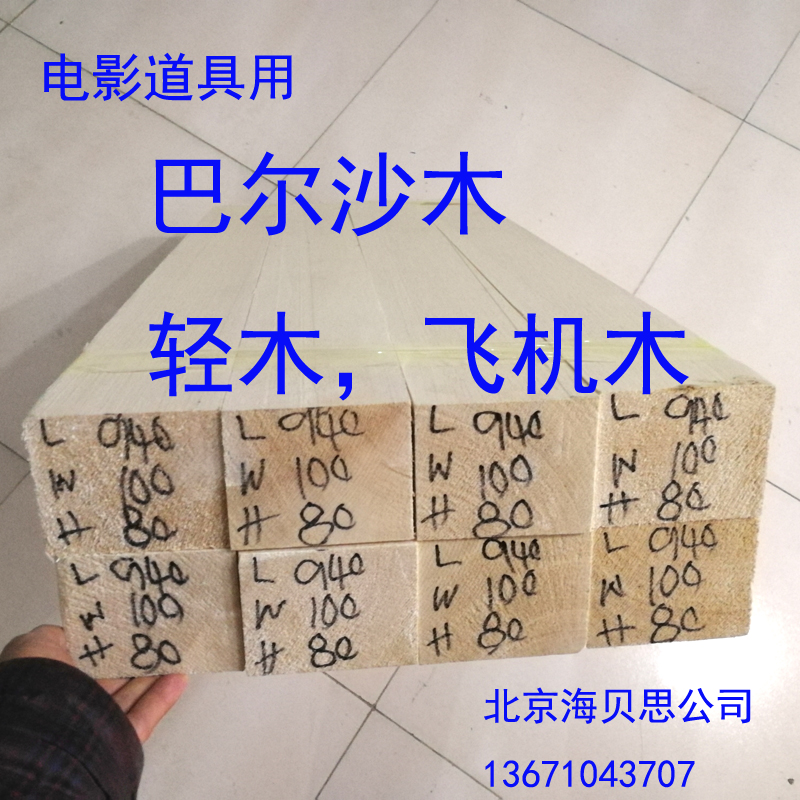 电影道具用
巴尔沙木
轻木，飞机木
L 940
W 100
H 80
L 940
W 100
H 80
L 940
W 100
H 80
L 940
W 100
H 80
L 940
W 100
H 80
L 940
W 100
H 80
L 940
W 100
H 80
L 940
W 100
H 80
北京海贝思公司
13671043707